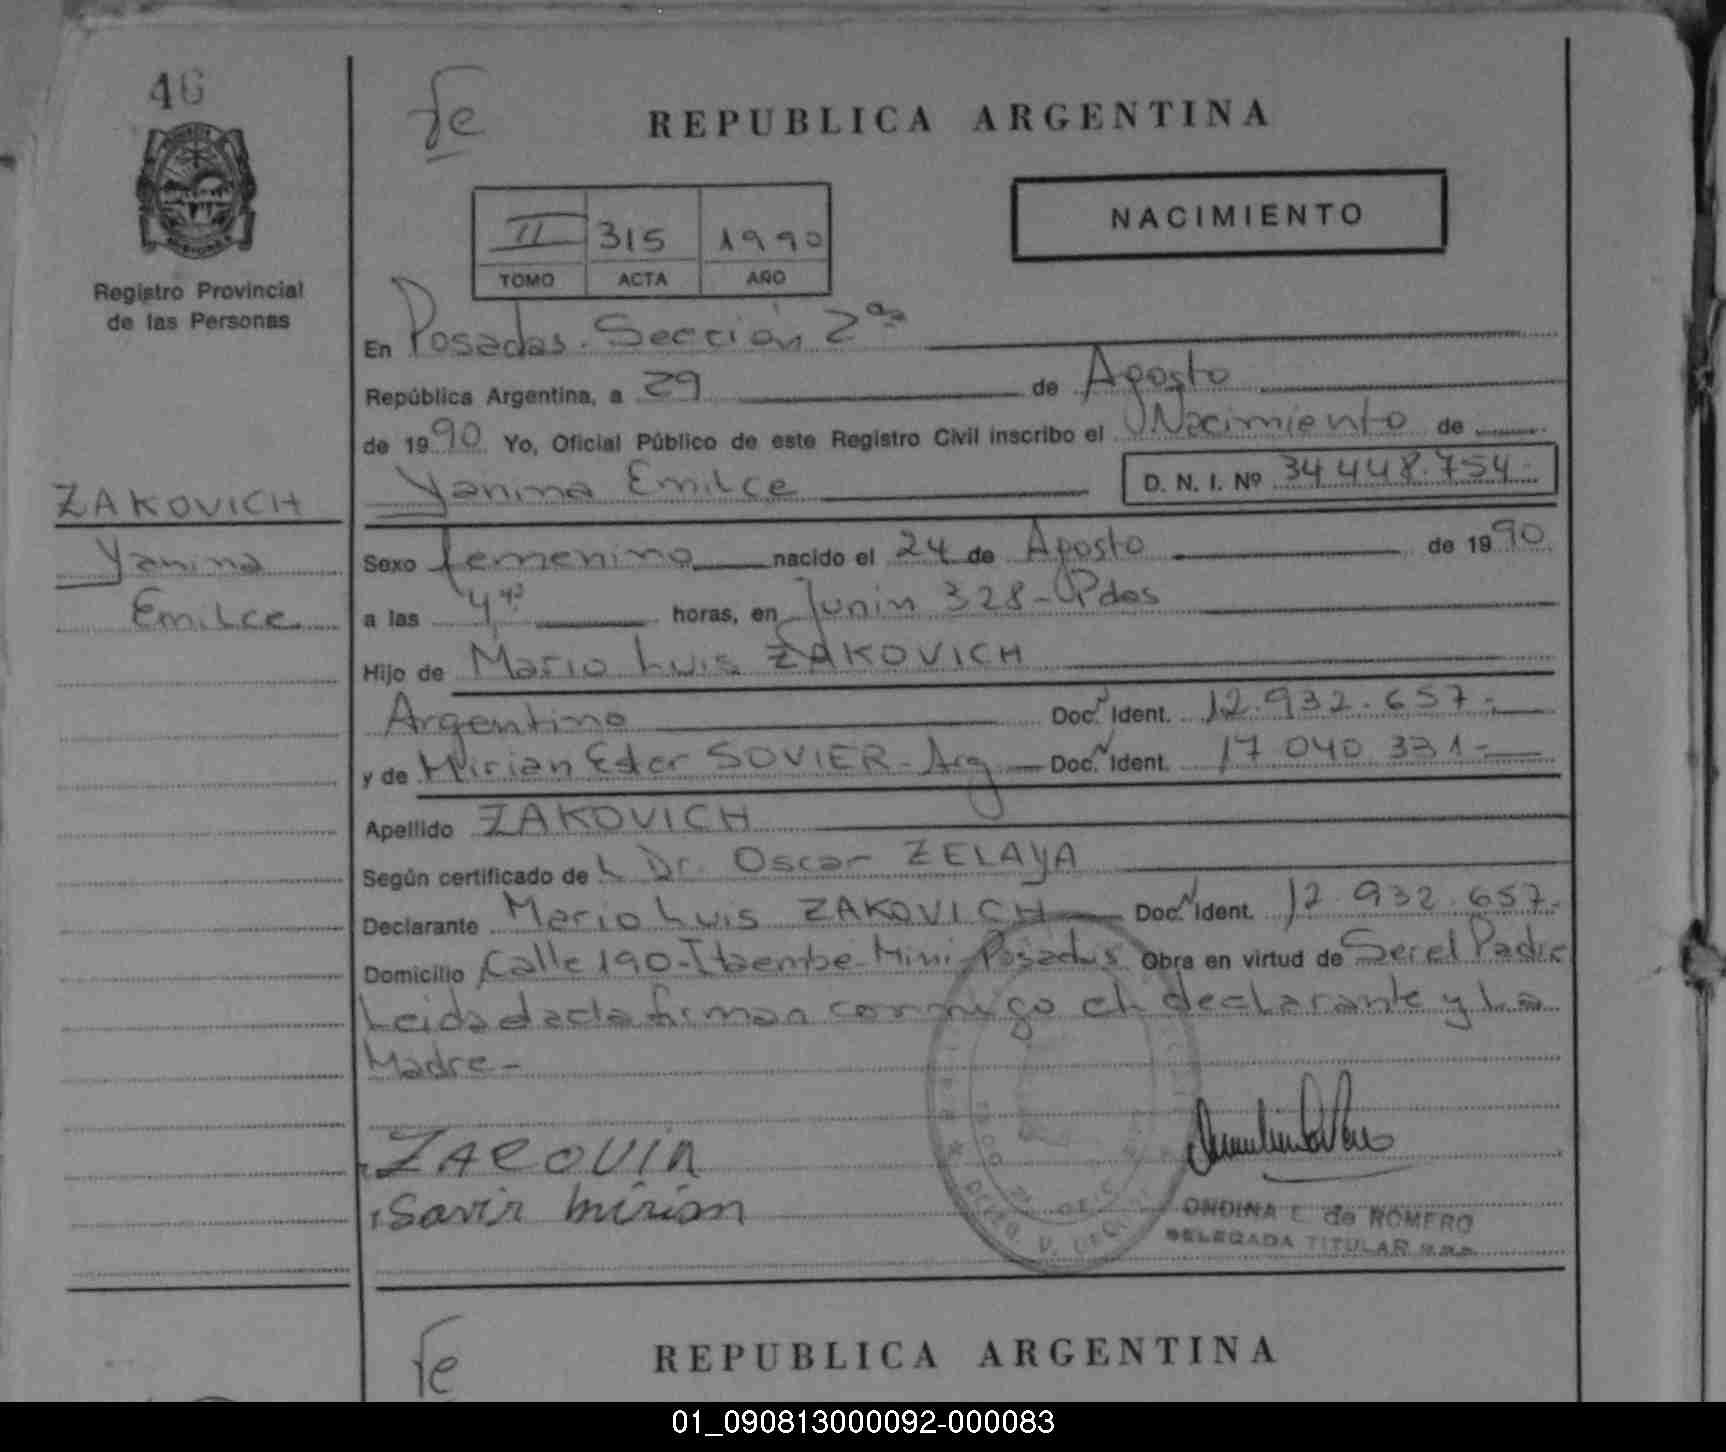 46
fe
REPUBLICA ARGENTINA
NACIMIENTO
II 315 1990
TOMO ACTA AÑO
Registro Provincial
de las Personas
En Posadas. Sección 2ª
República Argentina, a 29 de Agosto
de 1990 Yo, Oficial Público de este Registro Civil inscribo el Nacimiento de
Yanina Emilce D. N. I. Nº 34 448.754.
ZAKOVICH
Yanina
Emilce
Sexo femenino nacido el 24 de Agosto de 1990
a las 4 horas, en Junin 328 - Pdas
Hijo de Mario Luis ZAKOVICH
Argentino Doc. N Ident. 12.932.657.-
y de Mirian Ester SOVIER - Arg Doc. N Ident. 17 040 331-
Apellido ZAKOVICH
Según certificado de L Dr. Oscar ZELAYA
Declarante Mario Luis ZAKOVICH Doc. N Ident. 12.932.657.
Domicilio Calle 190-Itaembe-Mini-Posadas Obra en virtud de Ser el Padre
Leida el acta firman conmigo el declarante y La
Madre-
Savir mirian
ONDINA E. de ROMERO
DELEGADA TITULAR
fe
REPUBLICA ARGENTINA
01_090813000092-000083